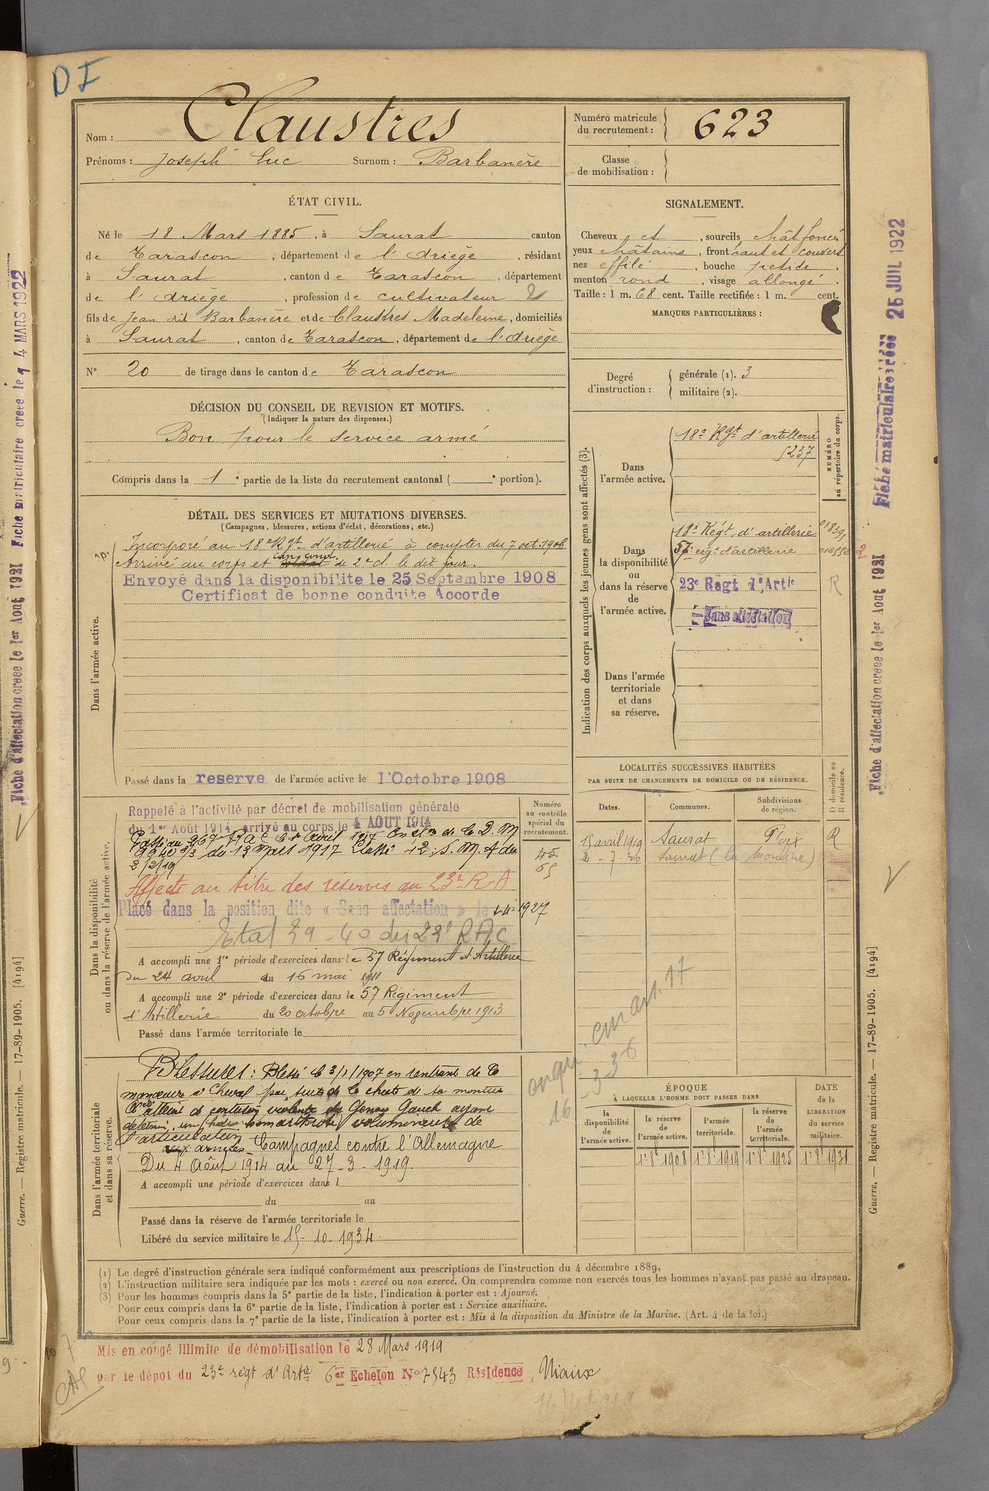 DI
Nom : Claustres
Prénoms : Joseph Luc Surnom : Barbanère
Numéro matricule du recrutement : 623
Classe de mobilisation :
ÉTAT CIVIL.
Né le 18 Mars 1885, à Saurat canton
de Tarascon, département de l'Ariège, résidant
à Saurat, canton de Tarascon, département
de l'Ariège, profession de cultivateur 2
fils de Jean dit Barbanère et de Claustres Madeleine, domiciliés
à Saurat, canton de Tarascon, département de l'Ariège
N° 20 de tirage dans le canton de Tarascon
SIGNALEMENT.
Cheveux et, sourcils chât foncé
yeux châtains, front haut et couvert
nez effilé, bouche petite,
menton rond, visage allongé.
Taille : 1 m. 68 cent. Taille rectifiée : 1 m. cent.
MARQUES PARTICULIÈRES :
Degré d'instruction : générale (1). 3
militaire (2).
DÉCISION DU CONSEIL DE REVISION ET MOTIFS.
(Indiquer la nature des dispenses.)
Bon pour le service armé
Compris dans la 1e partie de la liste du recrutement cantonal ( e portion).
DÉTAIL DES SERVICES ET MUTATIONS DIVERSES.
(Campagnes, blessures, actions d'éclat, décorations, etc.)
Dans l'armée active.
Incorporé au 18e Rgt d'artillerie à compter du 7 oct. 1906
Arrivé au corps et de 2e cl. le dit jour.
Envoyé dans la disponibilité le 25 Septembre 1908
Certificat de bonne conduite Accorde
Passé dans la reserve de l'armée active le 1 Octobre 1908
Indication des corps auxquels les jeunes gens sont affectés (3).
NUMÉRO au répertoire du corps.
Dans l'armée active.
18e Rgt d'artillerie
5237
Dans la disponibilité ou dans la réserve de l'armée active.
11e Régt d'artillerie
57e rég. d'artillerie
23e Regt d'Artie
Sans affectation
R
Dans l'armée territoriale et dans sa réserve.
LOCALITÉS SUCCESSIVES HABITÉES
PAR SUITE DE CHANGEMENTS DE DOMICILE OU DE RÉSIDENCE.
Dates. Communes. Subdivisions de région. D domicile ou R résidence.
15 avril 1919 Saurat Foix R
2-7-20 Saurat
Dans la disponibilité ou dans la réserve de l'armée active.
Numéro au contrôle spécial du recrutement.
Rappelé à l'activité par décret de mobilisation générale
du 1er Août 1914, arrivé au corps le 4 AOUT 1914
Affecté au titre des réserves au 23e R.A
Placé dans la position dite « Sans affectation » le 1-4-1927
A accompli une 1re période d'exercices dans le 57 Régiment d'Artillerie
du 24 avril au 16 mai 1911
A accompli une 2e période d'exercices dans le 57 Régiment
d'Artillerie du 20 octobre au 5 Novembre 1913
Passé dans l'armée territoriale le
Dans l'armée territoriale et dans sa réserve.
Blessures : Blessé le 3/1/1907 en rentrant de la
manœuvre à cheval par suite de la chute de sa monture
l'articulation
Campagnes contre l'Allemagne
Du 4 Août 1914 au 27-3-1919.
A accompli une période d'exercices dans l
du au
Passé dans la réserve de l'armée territoriale le
Libéré du service militaire le 15-10-1934.
ÉPOQUE
À LAQUELLE L'HOMME DOIT PASSER DANS
DATE de la LIBÉRATION du service militaire.
la disponibilité de l'armée active. la réserve de l'armée active. l'armée territoriale. la réserve de l'armée territoriale.
1.8.1908 1.8.1919 1.8.1925 1.8.1931
(1) Le degré d'instruction générale sera indiqué conformément aux prescriptions de l'instruction du 4 décembre 1889.
(2) L'instruction militaire sera indiquée par les mots : exercé ou non exercé. On comprendra comme non exercés tous les hommes n'ayant pas passé au drapeau.
(3) Pour les hommes compris dans la 5e partie de la liste, l'indication à porter est : Ajourné.
Pour ceux compris dans la 6e partie de la liste, l'indication à porter est : Service auxiliaire.
Pour ceux compris dans la 7e partie de la liste, l'indication à porter est : Mis à la disposition du Ministre de la Marine. (Art. 4 de la loi.)
Mis en congé illimite de démobilisation le 28 Mars 1919
par le dépot du 23e régt d'Artie 6er Echelon N° 7543 Résidence Niaux
Fiche matriculaire créée 25 JUIL 1922
Fiche d'affectation créée le 1er Aout 1921
Guerre. — Registre matricule. — 17-89-1905. [4194]
Fiche matriculaire créée le 14 MARS 1922
Fiche d'affectation créée le 1er Aout 1921
Guerre. — Registre matricule. — 17-89-1905. [4194]